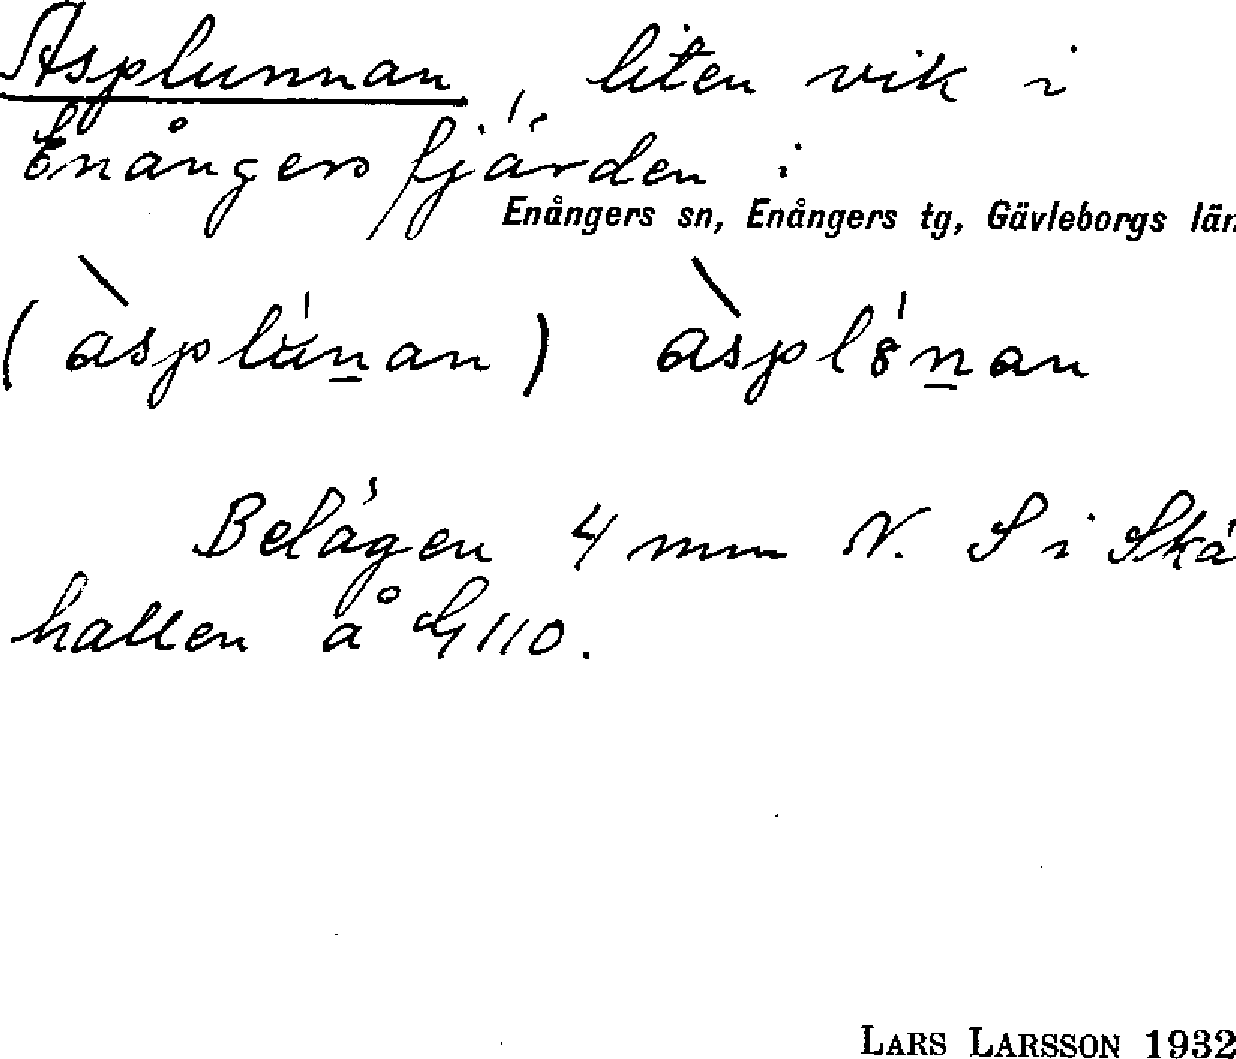 Asplunnan, liten vik i
Enångersfjärden i
Enångers sn, Enångers tg, Gävleborgs län
(àsplúnan) àsplónan
Belägen 4 mm N. S i Skä
hallen å G110.
LARS LARSSON 1932